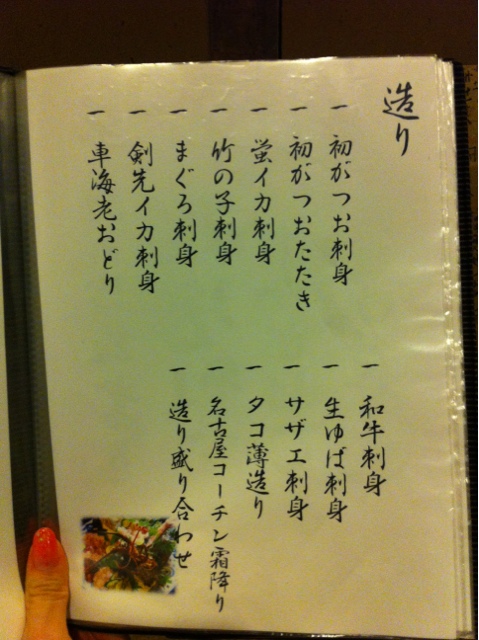 造り
一 初がつお刺身
一 初がつおたたき
一 蛍イカ刺身
一 竹の子刺身
一 まぐろ刺身
一 剣先イカ刺身
一 車海老おどり
一 和牛刺身
一 生ゆば刺身
一 サザエ刺身
一 タコ薄造り
一 名古屋コーチン霜降り
一 造り盛り合わせ